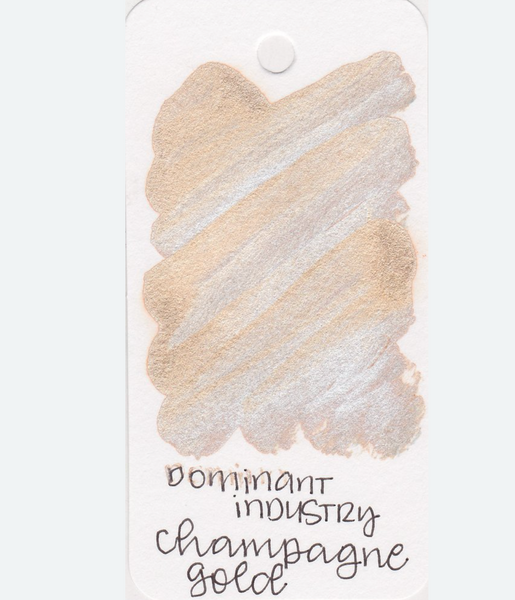 Dominant
industry
champagne
gold